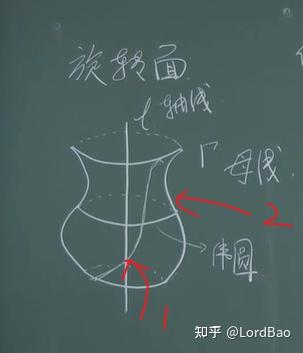 旋转面
l 轴线
Γ 母线
纬圆
2
1
知乎 @LordBao